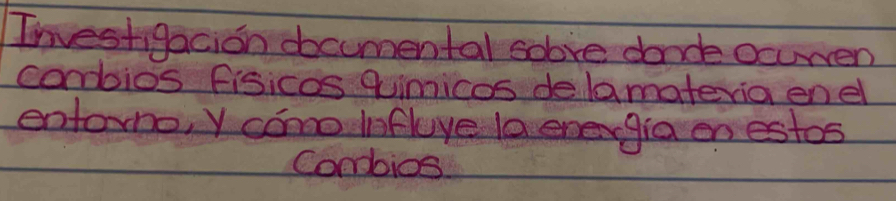 Investigación documental sobre donde ocurren
cambios físicos químicos de la materia en el
entorno, y cómo influye la energía en estos
Cambios.